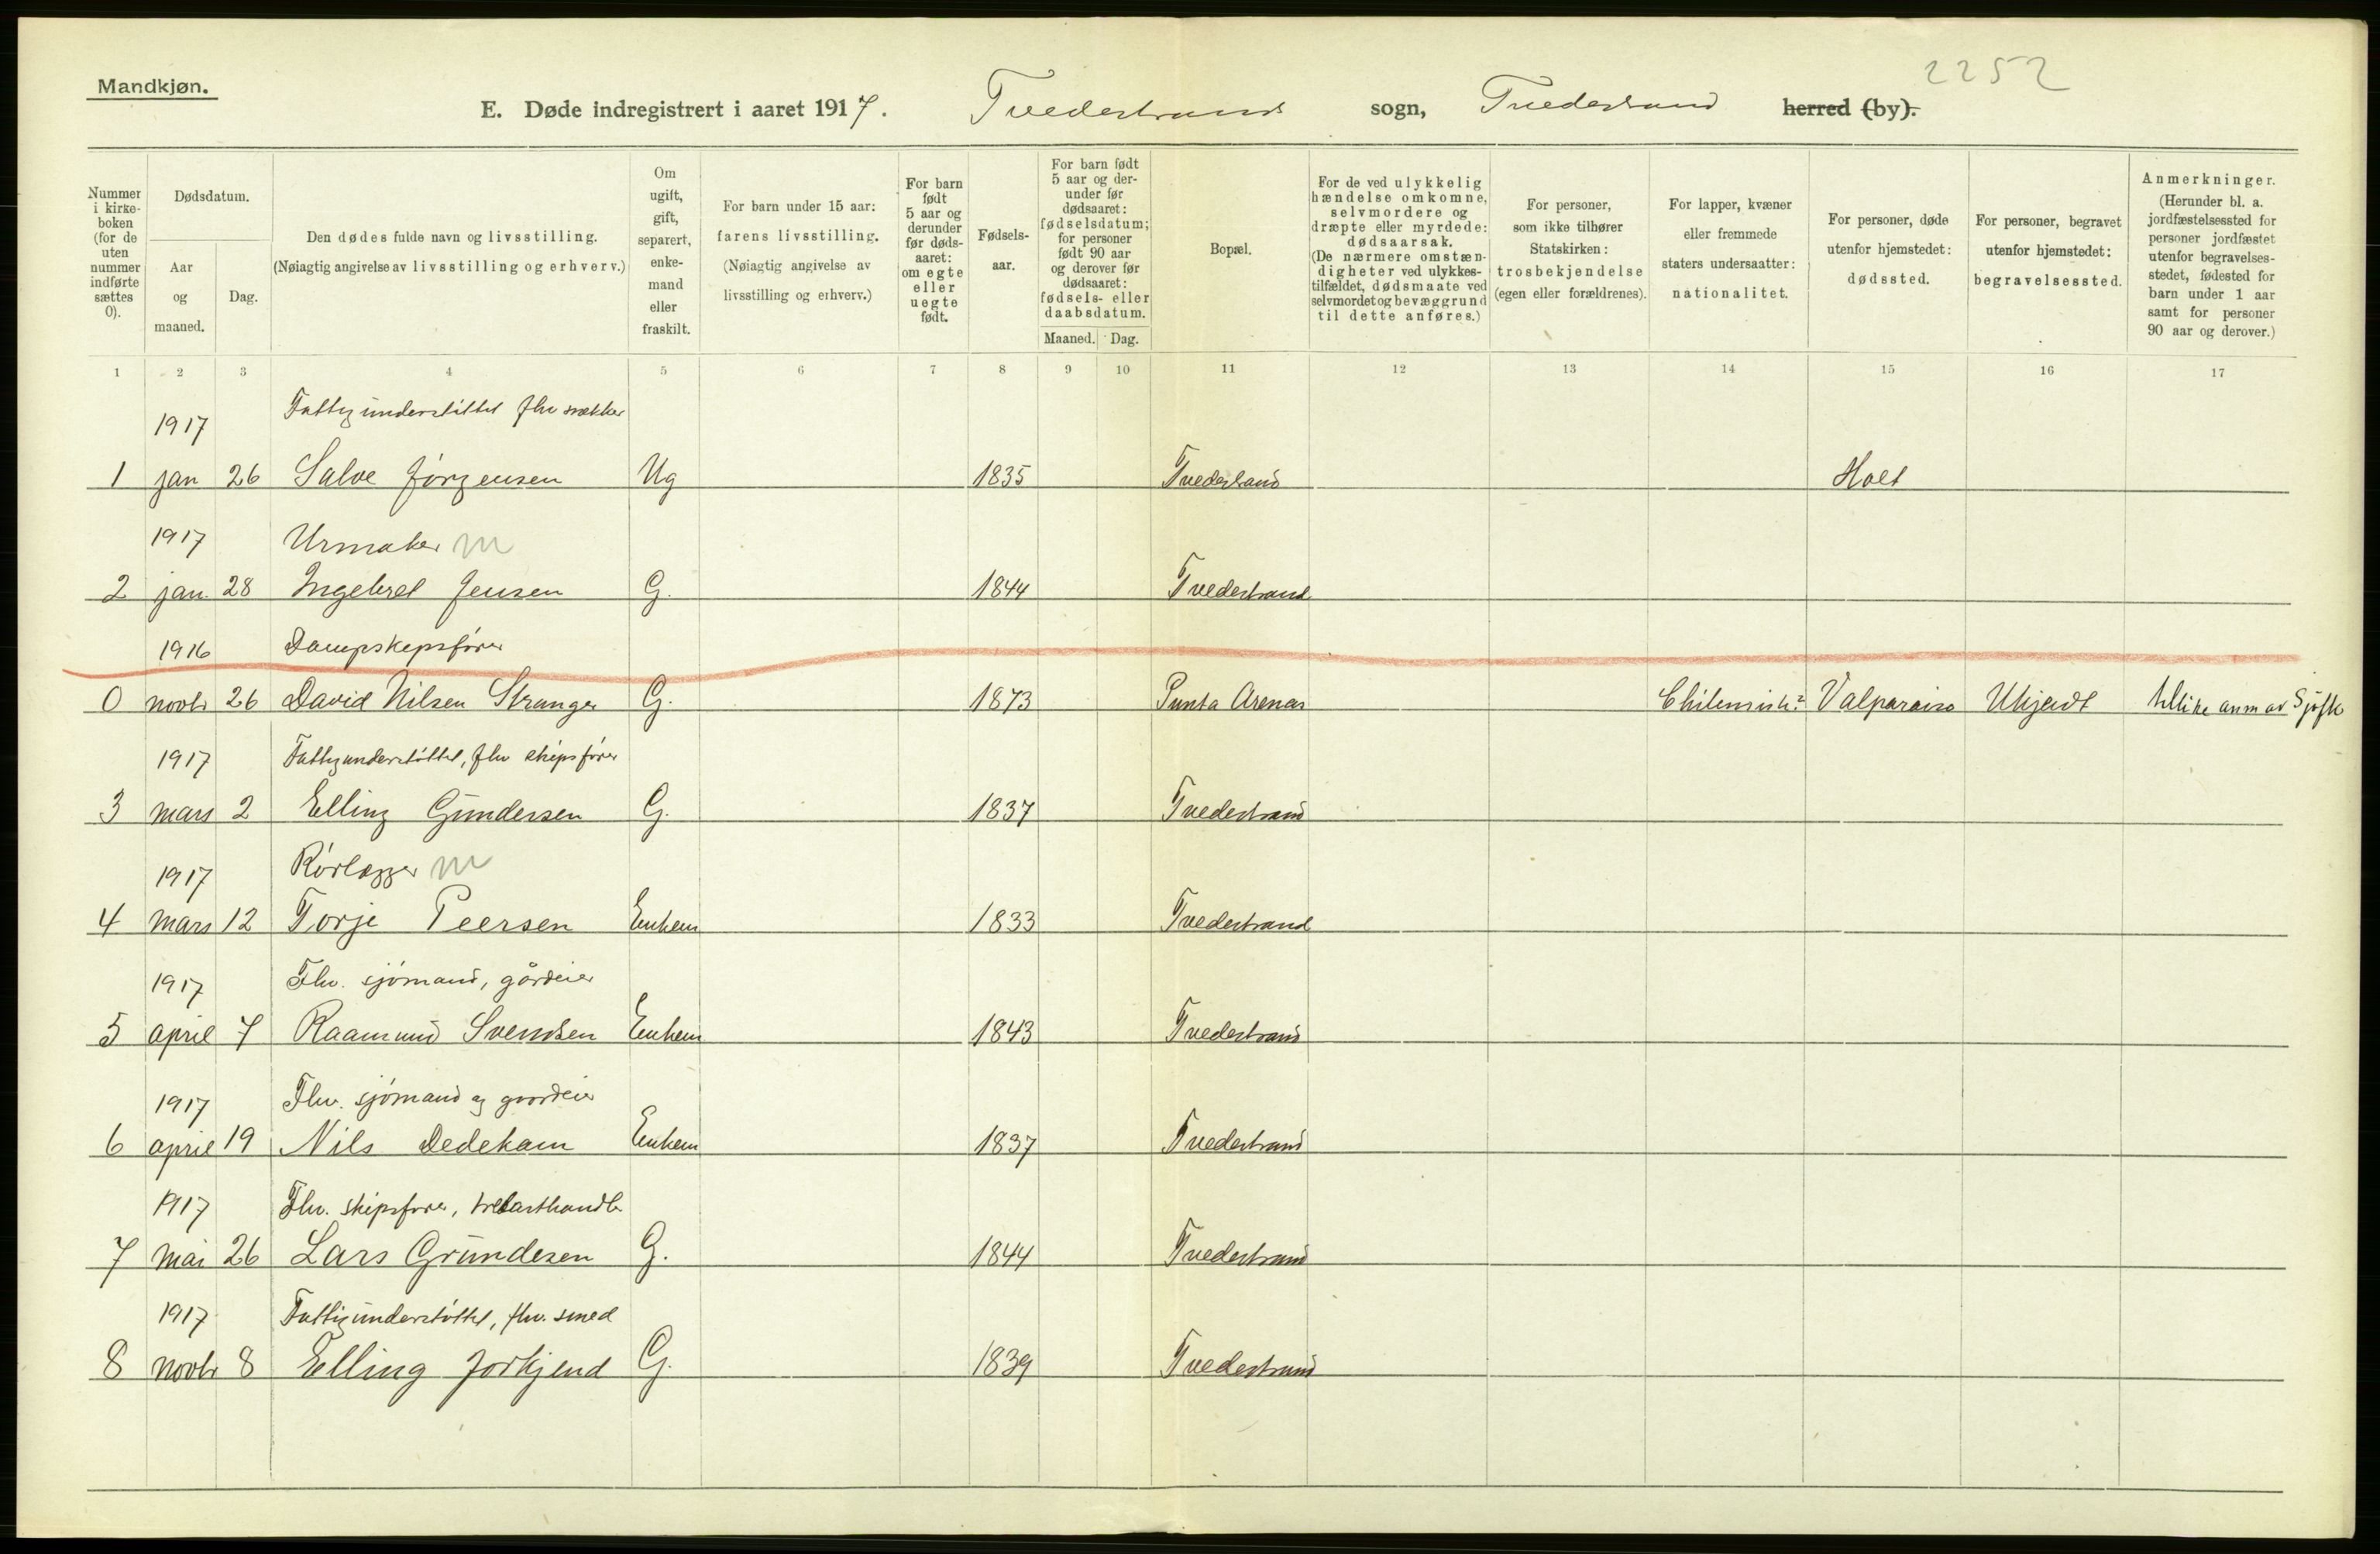 2252
Mandkjøn.
E. Døde indregistrert i aaret 1917. Tvedestrand sogn, Tvedestrand herred (by).
Nummer i kirke-boken (for de uten nummer indførte sættes 0).
Dødsdatum.
Aar og maaned.
Dag.
Den dødes fulde navn og livsstilling.
(Nøiagtig angivelse av livsstilling og erhverv.)
Om ugift, gift, separert, enke-mand eller fraskilt.
For barn under 15 aar: farens livsstilling. (Nøiagtig angivelse av livsstilling og erhverv.)
For barn født 5 aar og derunder før døds-aaret: om egte eller uegte født.
Fødsels-aar.
For barn født 5 aar og der-under før dødsaaret: fødselsdatum; for personer født 90 aar og derover før dødsaaret: fødsels- eller daabsdatum.
Maaned. Dag.
Bopæl.
For de ved ulykkelig hændelse omkomne, selvmordere og dræpte eller myrdede: dødsaarsak. (De nærmere omstæn-digheter ved ulykkes-tilfældet, dødsmaate ved selvmordet og bevæggrund til dette anføres.)
For personer, som ikke tilhører Statskirken: trosbekjendelse (egen eller forældrenes).
For lapper, kvæner eller fremmede staters undersaatter: nationalitet.
For personer, døde utenfor hjemstedet: dødssted.
For personer, begravet utenfor hjemstedet: begravelsessted.
Anmerkninger. (Herunder bl. a. jordfæstelsessted for personer jordfæstet utenfor begravelses-stedet, fødested for barn under 1 aar samt for personer 90 aar og derover.)
1 2 3 4 5 6 7 8 9 10 11 12 13 14 15 16 17
1917 Fattigunderstøttet fhv snekker
1 jan 26 Salve Jörgensen Ug 1835 Tvedestrand Holt
1917 Urmaker m
2 jan. 28 Ingebret Jensen G. 1844 Tvedestrand
1916 Dampskipsfører
0 novbr 26 David Nilsen Stranger G. 1873 Punta Arenas Chilensisk? Valparaiso Ukjendt anm av Sjøfk
1917 Fattigunderstöttet, fhv skipsfører
3 mars 2 Elling Gundersen G. 1837 Tvedestrand
1917 Rörlægger m
4 mars 12 Torje Peersen Enkem 1833 Tvedestrand
1917 Fhv. sjömand, gårdeier
5 april 7 Raamund Svendsen Enkem 1843 Tvedestrand
1917 Fhv. sjömand og gaardeier
6 april 19 Nils Dedekam Enkem 1837 Tvedestrand
1917 Fhv. skipsfører, trelasthandl.
7 mai 26 Lars Grundesen G. 1844 Tvedestrand
1917 Fattigunderstöttet, fhv. smed
8 novbr 8 Elling Forkjend G. 1839 Tvedestrand